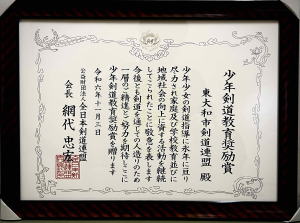 少年剣道教育奨励賞
東大和市剣道連盟 殿
少年少女の剣道指導に永年に亘り
尽力され家庭及び学校教育並びに
地域社会の向上に資する活動を継続
してこられたことに敬意を表します
今後とも剣道を通じての人造りのため
一層のご精進とご努力を期待しここに
少年剣道教育奨励賞を贈ります
令和六年十一月三日
公益財団法人全日本剣道連盟
会長 網代忠宏